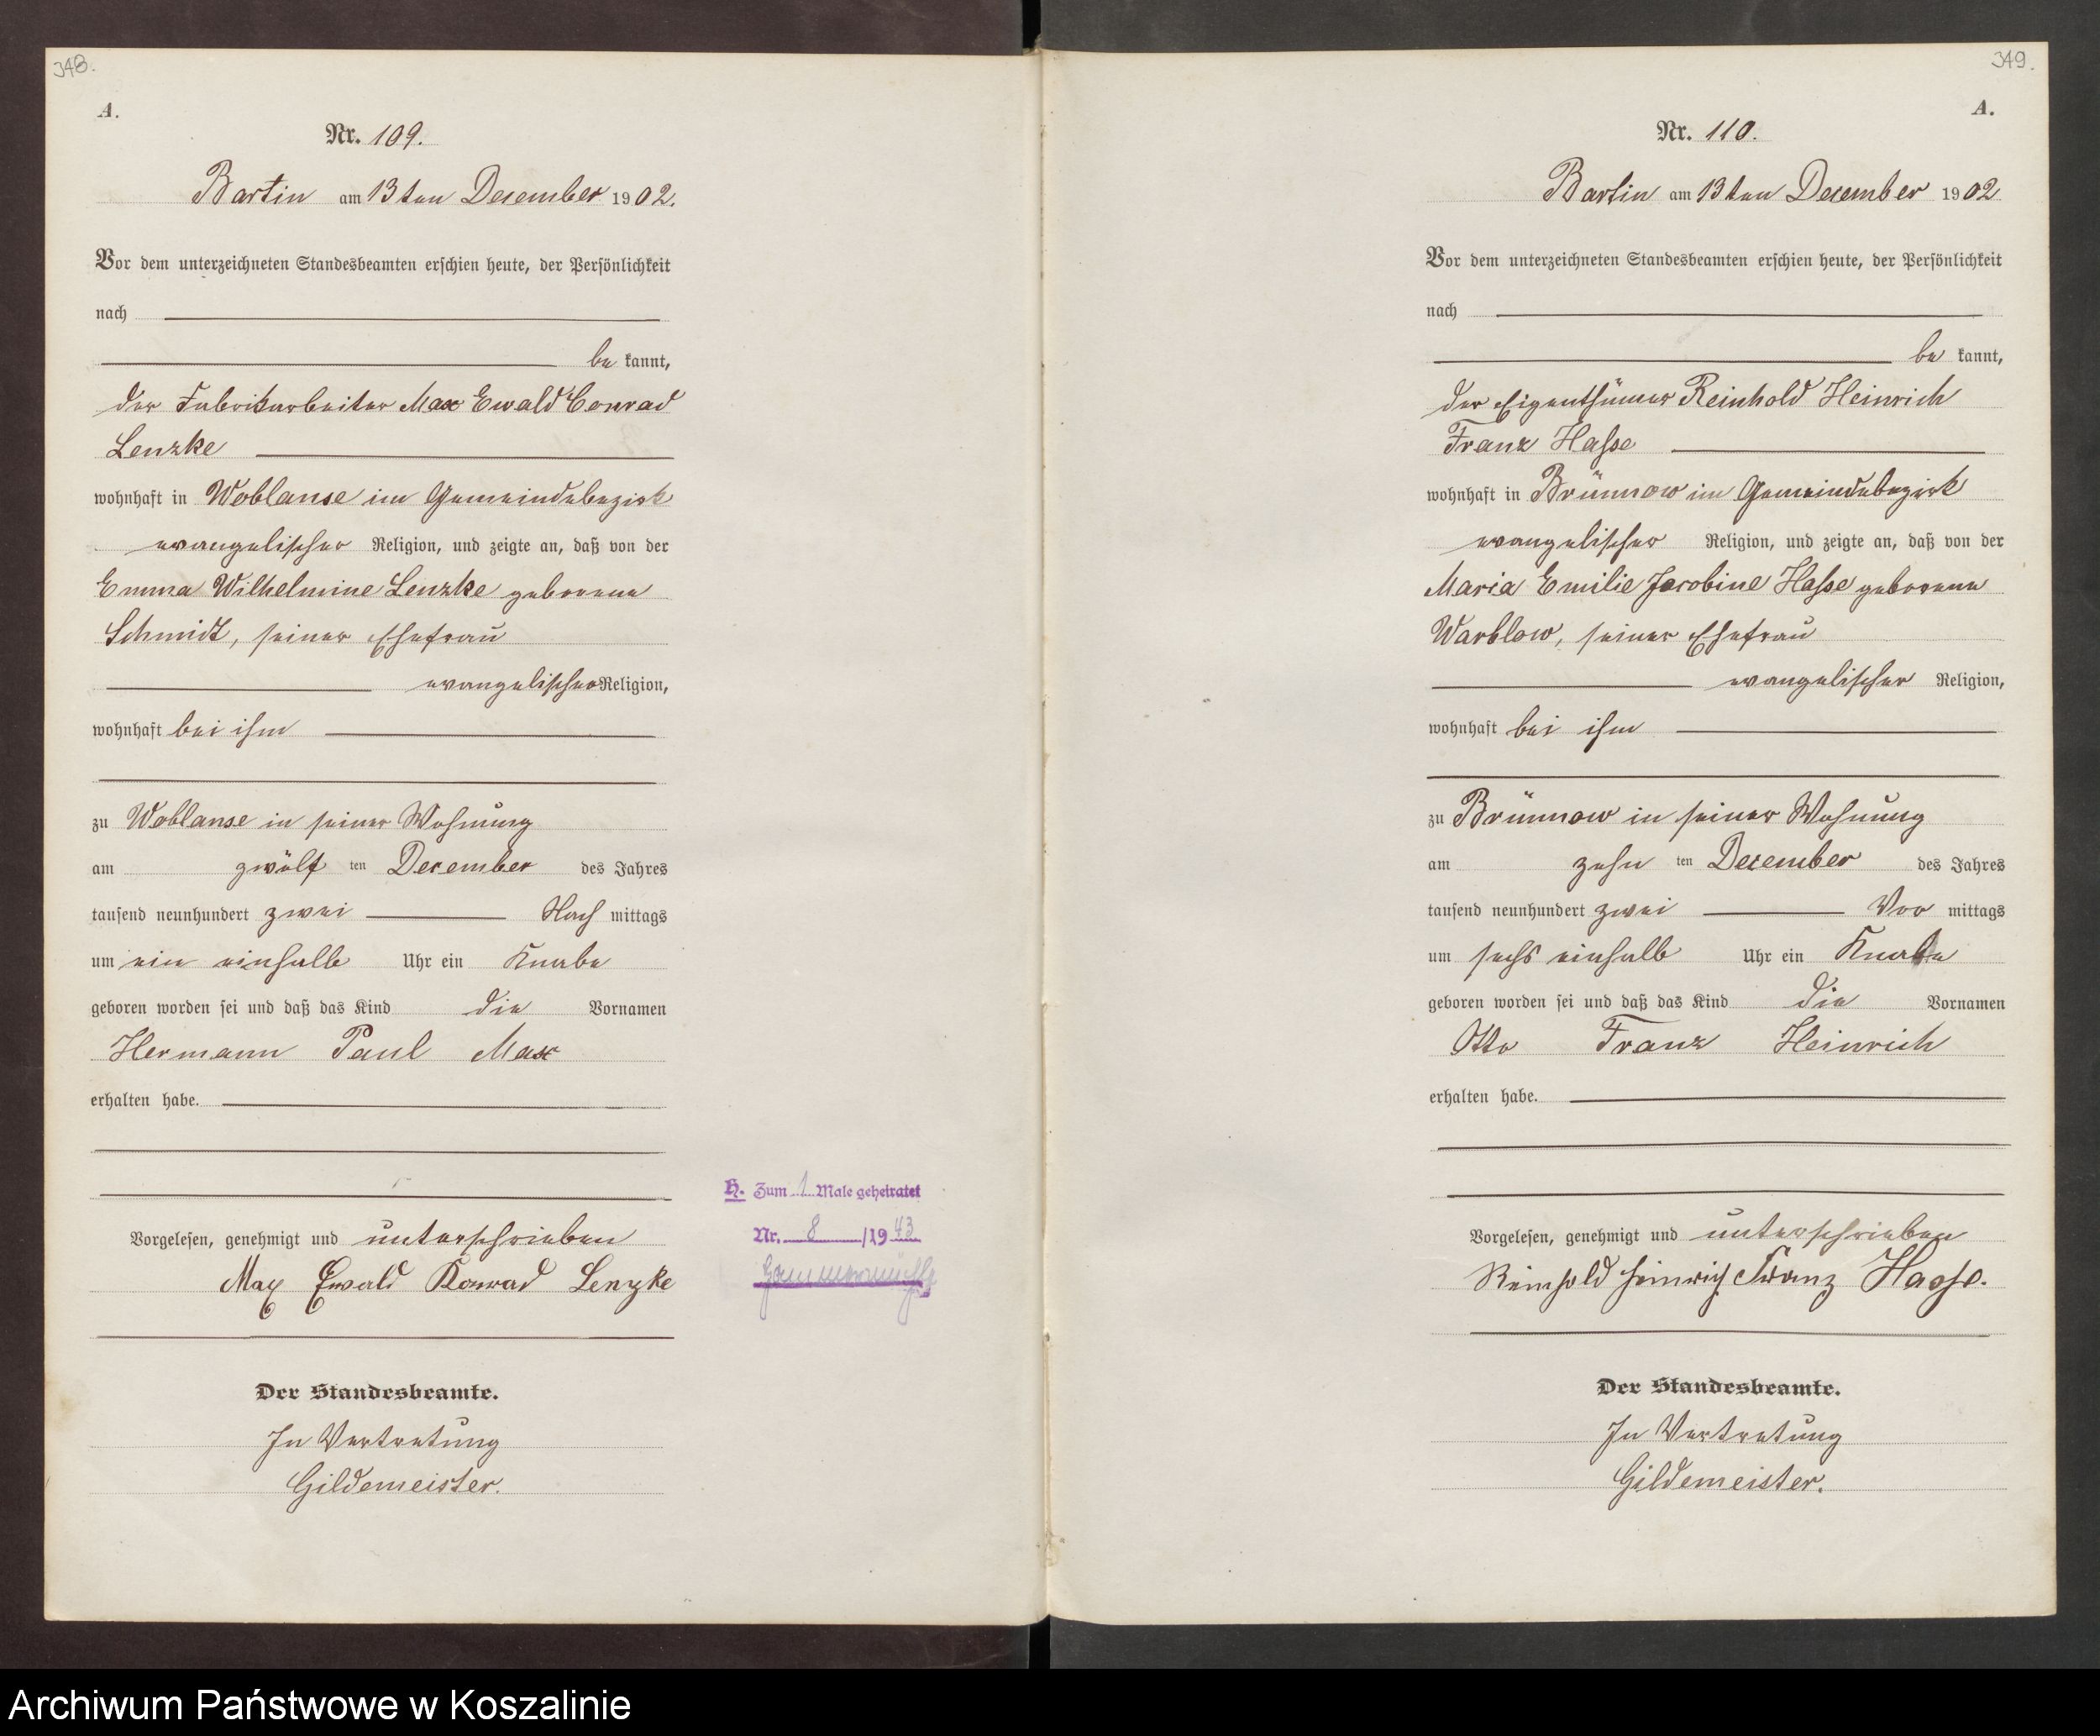 348.
A.
Nr. 109.
Bartin am 13ten December 1902.
Vor dem unterzeichneten Standesbeamten erschien heute, der Persönlichkeit
nach
be kannt,
der Fabrikarbeiter Max Ewald Conrad
Lenzke
wohnhaft in Woblanse im Gemeindebezirk
evangelischer Religion, und zeigte an, daß von der
Emma Wilhelmine Lenzke geborene
Schmidt, seiner Ehefrau
evangelischer Religion,
wohnhaft bei ihm
zu Woblanse in seiner Wohnung
am zwölf ten December des Jahres
tausend neunhundert zwei Nach mittags
um ein einhalb Uhr ein Knabe
geboren worden sei und daß das Kind die Vornamen
Hermann Paul Max
erhalten habe.
Vorgelesen, genehmigt und unterschrieben
Max Ewald Konrad Lenzke
Der Standesbeamte.
In Vertretung
Gildemeister.
H. Zum 1 Male geheiratet
Nr. 8 /1943
349.
A.
Nr. 110.
Bartin am 13ten December 1902
Vor dem unterzeichneten Standesbeamten erschien heute, der Persönlichkeit
nach
be kannt,
der Eigenthümer Reinhold Heinrich
Franz Hasse
wohnhaft in Brünnow im Gemeindebezirk
evangelischer Religion, und zeigte an, daß von der
Maria Emilie Jacobine Hasse geborene
Warblow, seiner Ehefrau
evangelischer Religion,
wohnhaft bei ihm
zu Brünnow in seiner Wohnung
am zehn ten December des Jahres
tausend neunhundert zwei Vor mittags
um sechs einhalb Uhr ein Knabe
geboren worden sei und daß das Kind die Vornamen
Otto Franz Heinrich
erhalten habe.
Vorgelesen, genehmigt und unterschrieben
Reinhold Heinrich Franz Hasse.
Der Standesbeamte.
In Vertretung
Gildemeister.
Archiwum Państwowe w Koszalinie